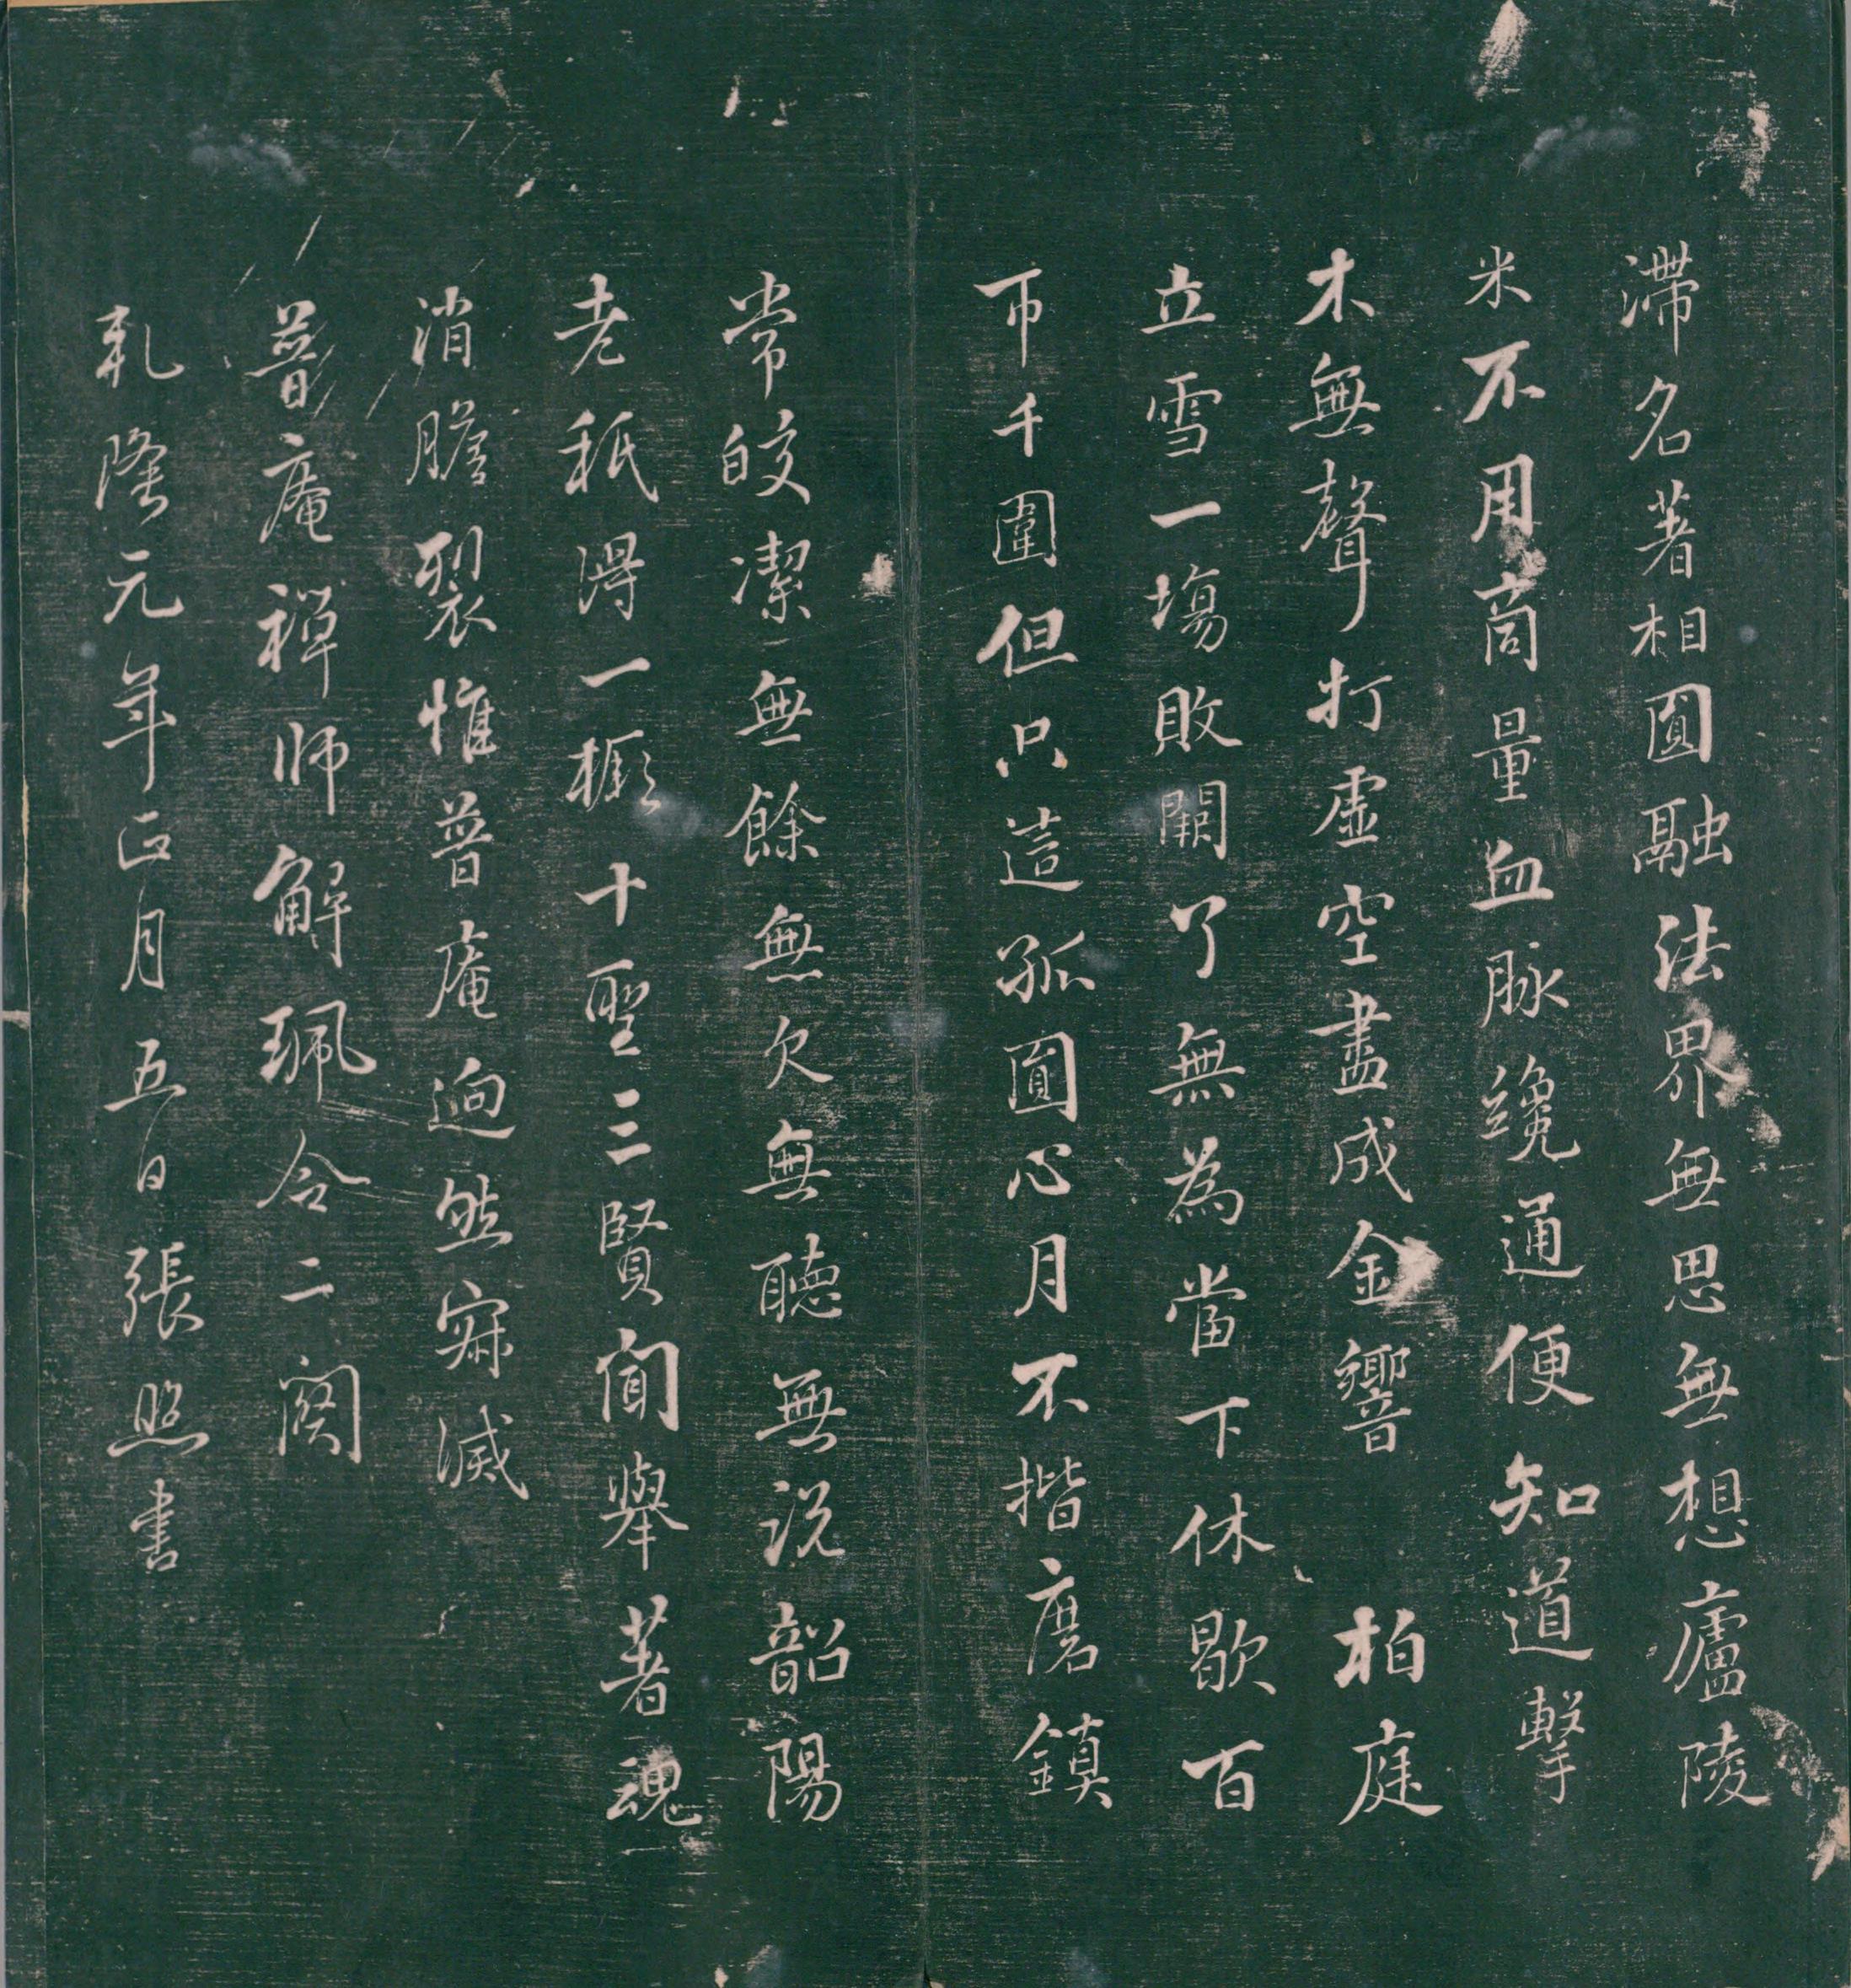 滯名著相圓融法界無思無想廬陵
米不用商量血脉纔通便知道擊
木無聲打虛空盡成金響 柏庭
立雪一塲敗闕了無為當下休歇百
帀千圍但只這孤圓心月不揩磨鎮
常皎潔無餘無欠無聽無說韶陽
老秪得一橛十聖三賢聞舉著魂
消膽裂惟普庵迥然寂滅
普庵禪師解珮令二闋
乹隆元年正月五日張照書